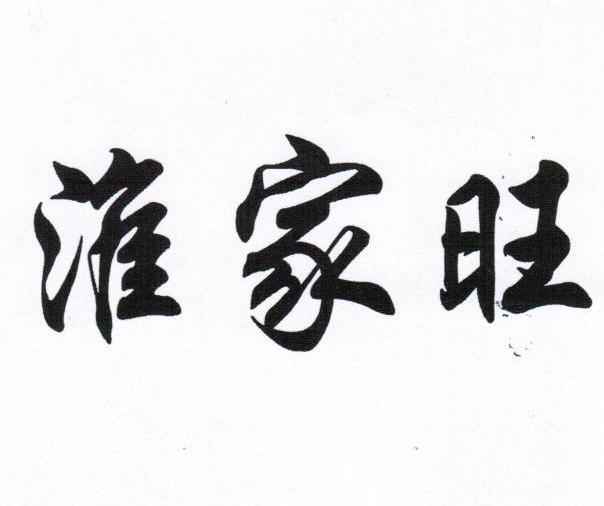 淮家旺